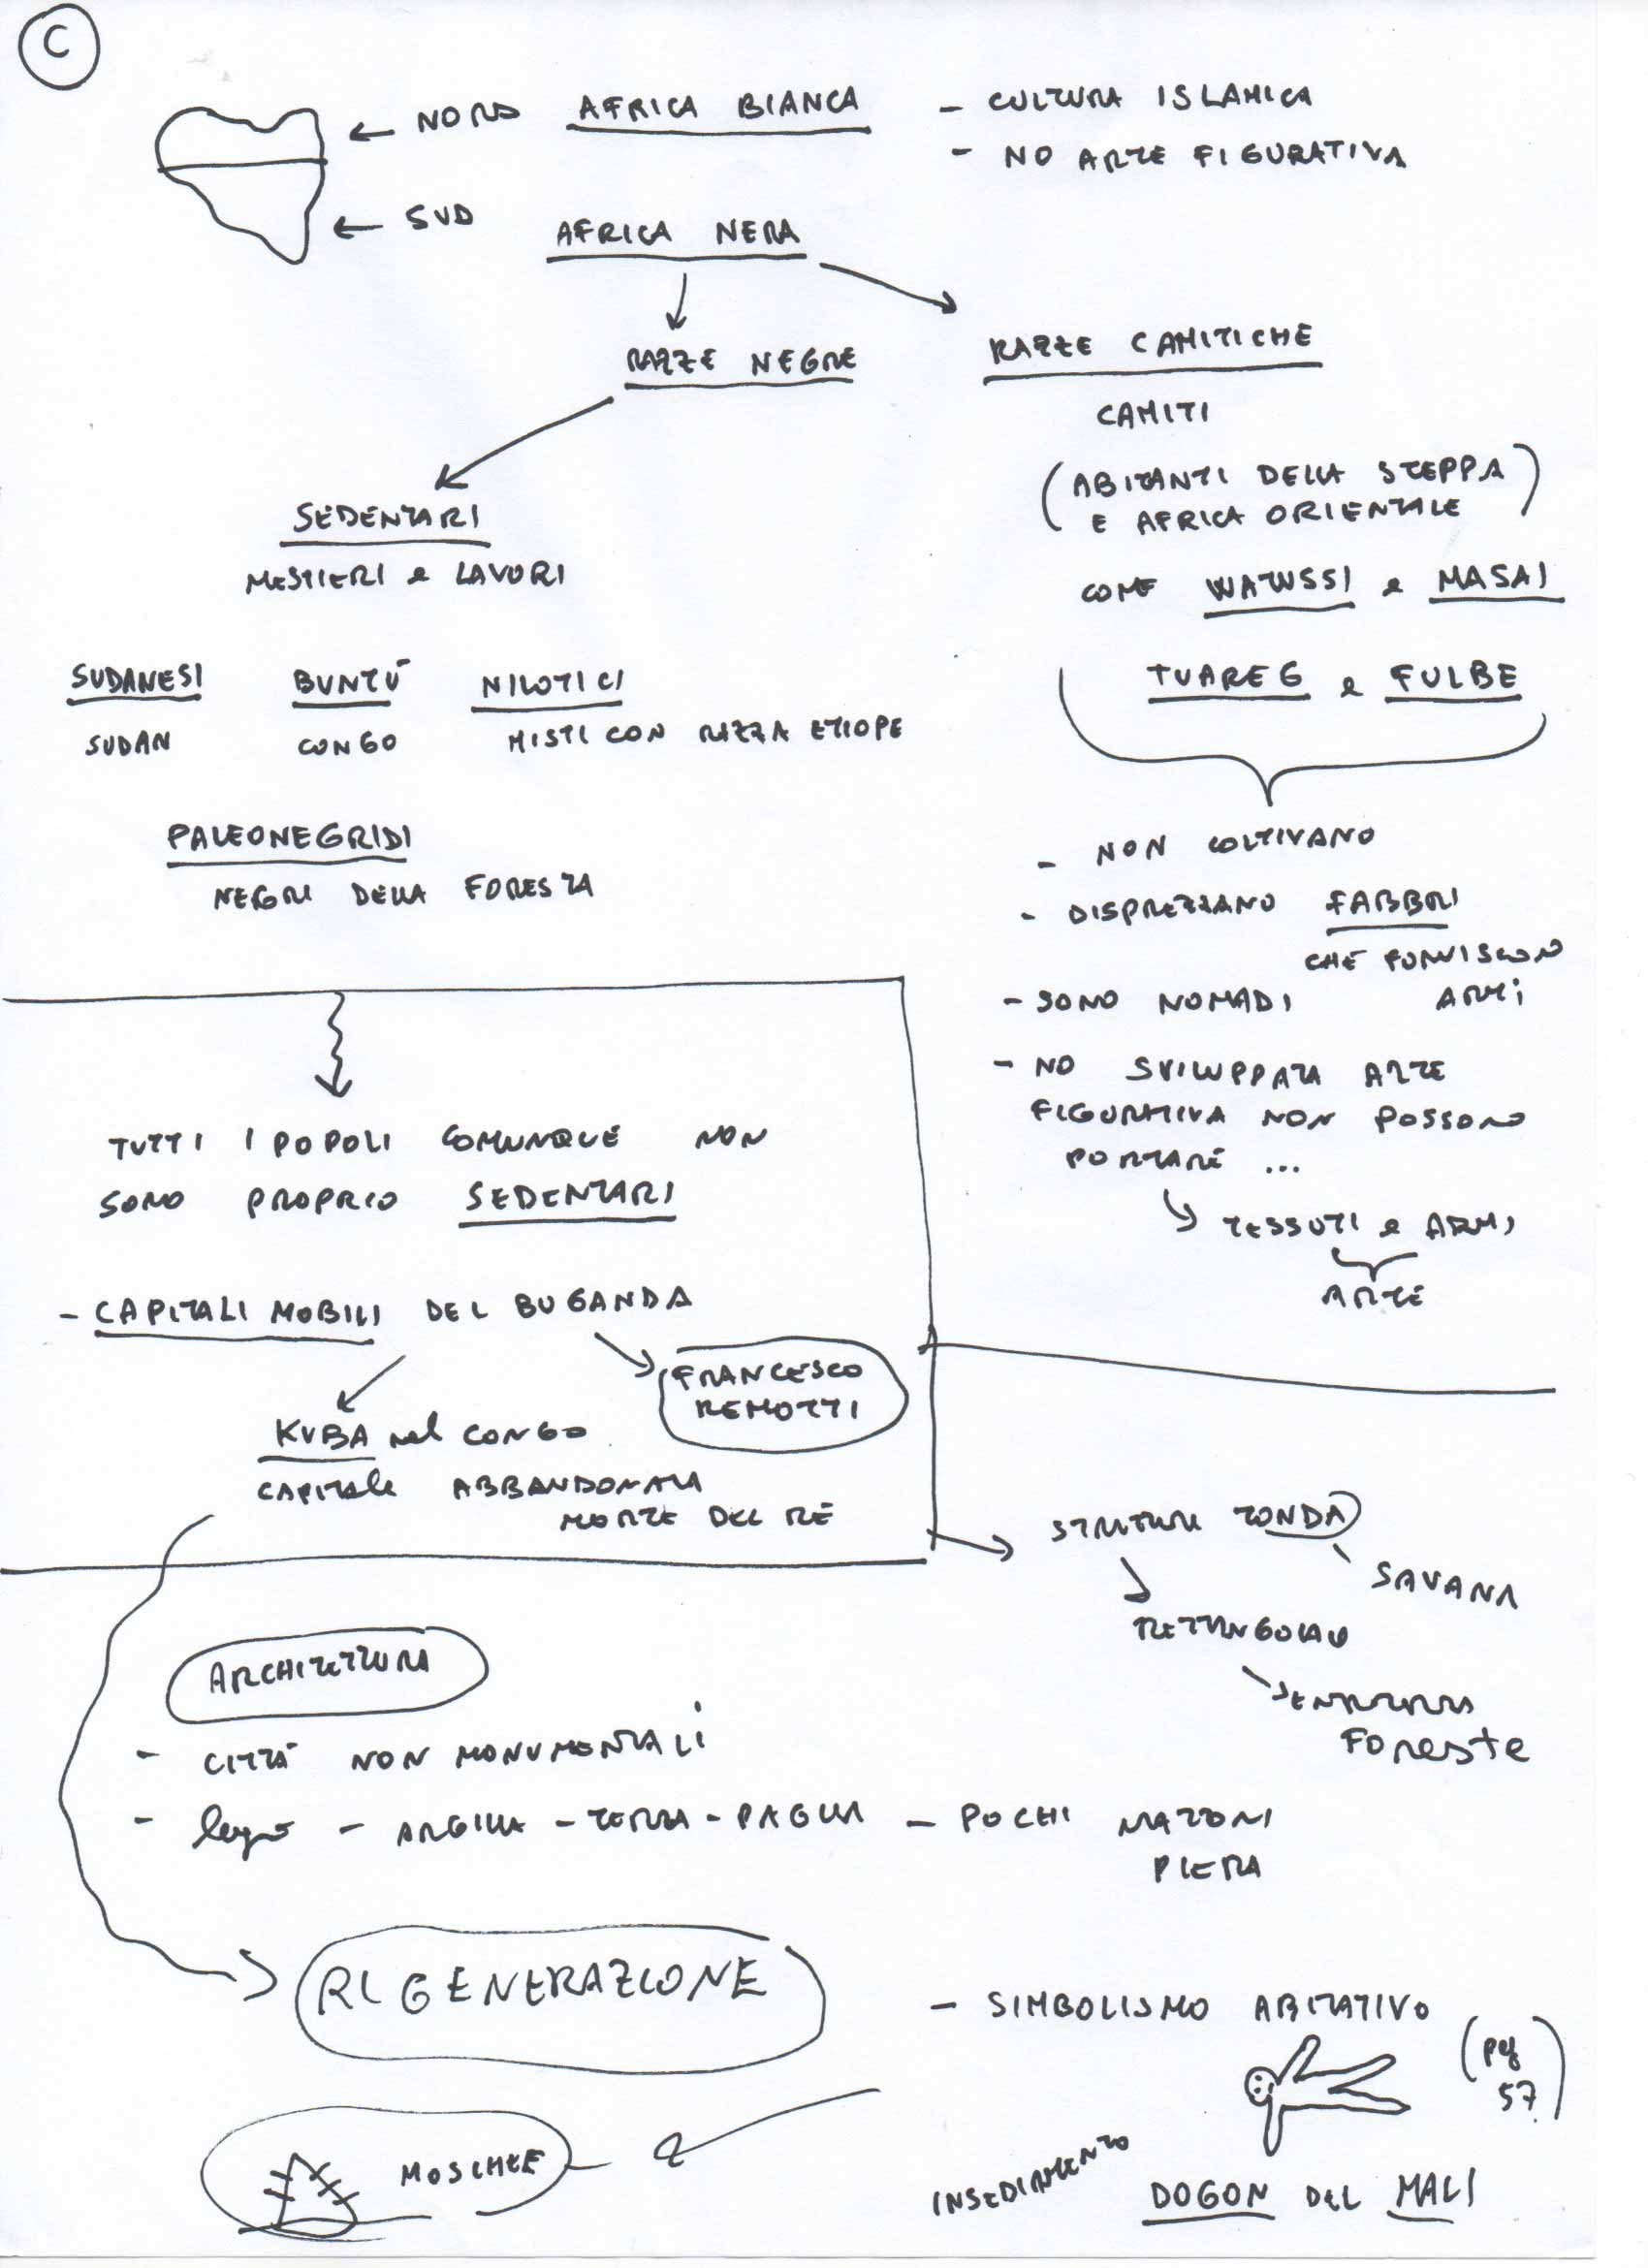 C
← NORD AFRICA BIANCA - CULTURA ISLAMICA
- NO ARTE FIGURATIVA
← SUD AFRICA NERA
RAZZE NEGRE
RAZZE CAMITICHE
CAMITI
(ABITANTI DELLA STEPPA
E AFRICA ORIENTALE)
COME WATUSSI e MASAI
TUAREG e FULBE
- NON COLTIVANO
- DISPREZZANO FABBRI
CHE FORNISCON
ARMi
- SONO NOMADI
- NO SVILUPPATA ARTE
FIGURATIVA NON POSSONO
PORTARE ...
TESSUTI e ARMI
ARTE
SEDENTARI
MESTIERI e LAVORI
SUDANESI BUNTÚ NILOTICI
SUDAN CONGO MISTI CON RAZZA ETIOPE
PALEONEGRIDI
NEGRI DELLA FORESTA
TUTTI I POPOLI COMUNQUE NON
SONO PROPRIO SEDENTARI
- CAPITALI MOBILI DEL BUGANDA
FRANCESCO
REMOTTI
KUBA nel CONGO
CAPITALE ABBANDONATA
MORTE DEL RE
STRUTTURE TONDA
SAVANA
RETTANGOLARE
Foreste
ARCHITETTURA
- CITTÀ NON MONUMENTALI
- legno - ARGILLA - TERRA - PAGLIA - POCHI MATTONI
PIETRA
RIGENERAZIONE
- SIMBOLISMO ABITATIVO
(pg
57)
INSEDIAMENTO
DOGON DEL MALI
MOSCHEE